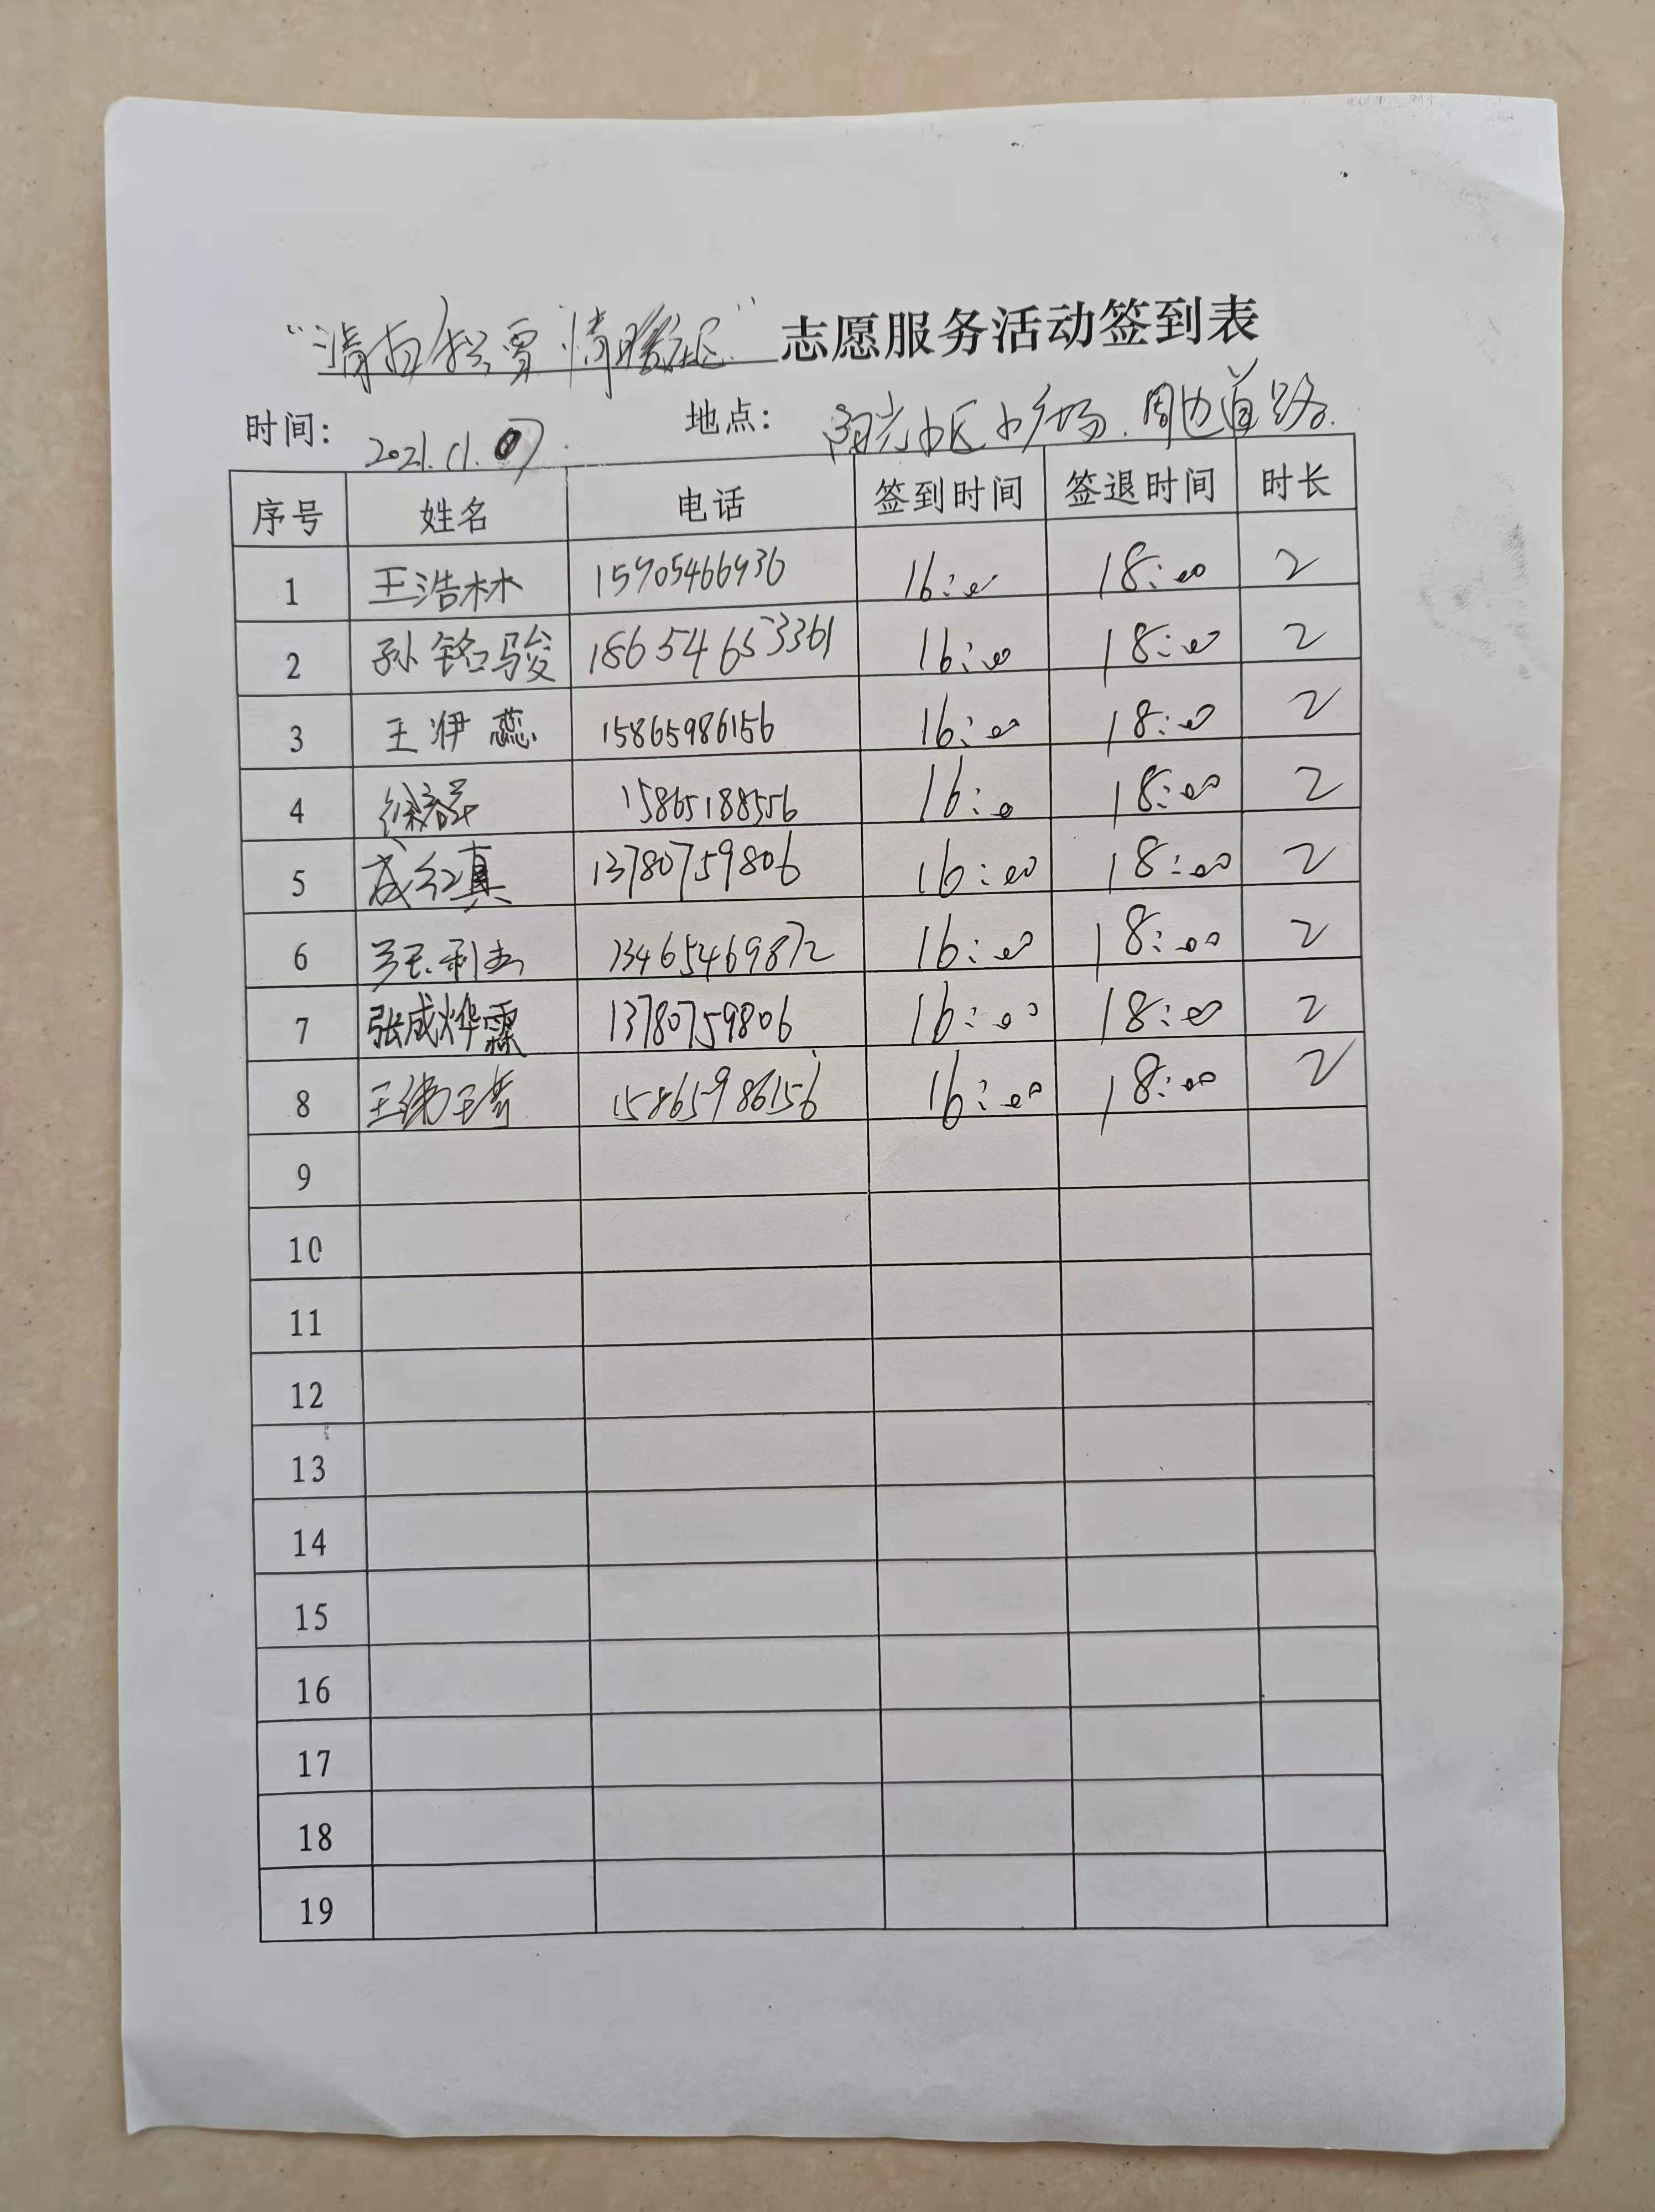 “清扫积雪 情暖社区” 志愿服务活动签到表
时间: 2021.11.07. 地点: 阳光小区小广场、周边道路.
序号 姓名 电话 签到时间 签退时间 时长
1 王浩林 15905466936 16:00 18:00 2
2 孙铭骏 18654653361 16:00 18:00 2
3 王洢蕊 15865986156 16:00 18:00 2
4 15865188556 16:00 18:00 2
5 成红真 13780759806 16:00 18:00 2
6 13465469872 16:00 18:00 2
7 张成烨霖 13780759806 16:00 18:00 2
8 15865986156 16:00 18:00 2
9
10
11
12
13
14
15
16
17
18
19